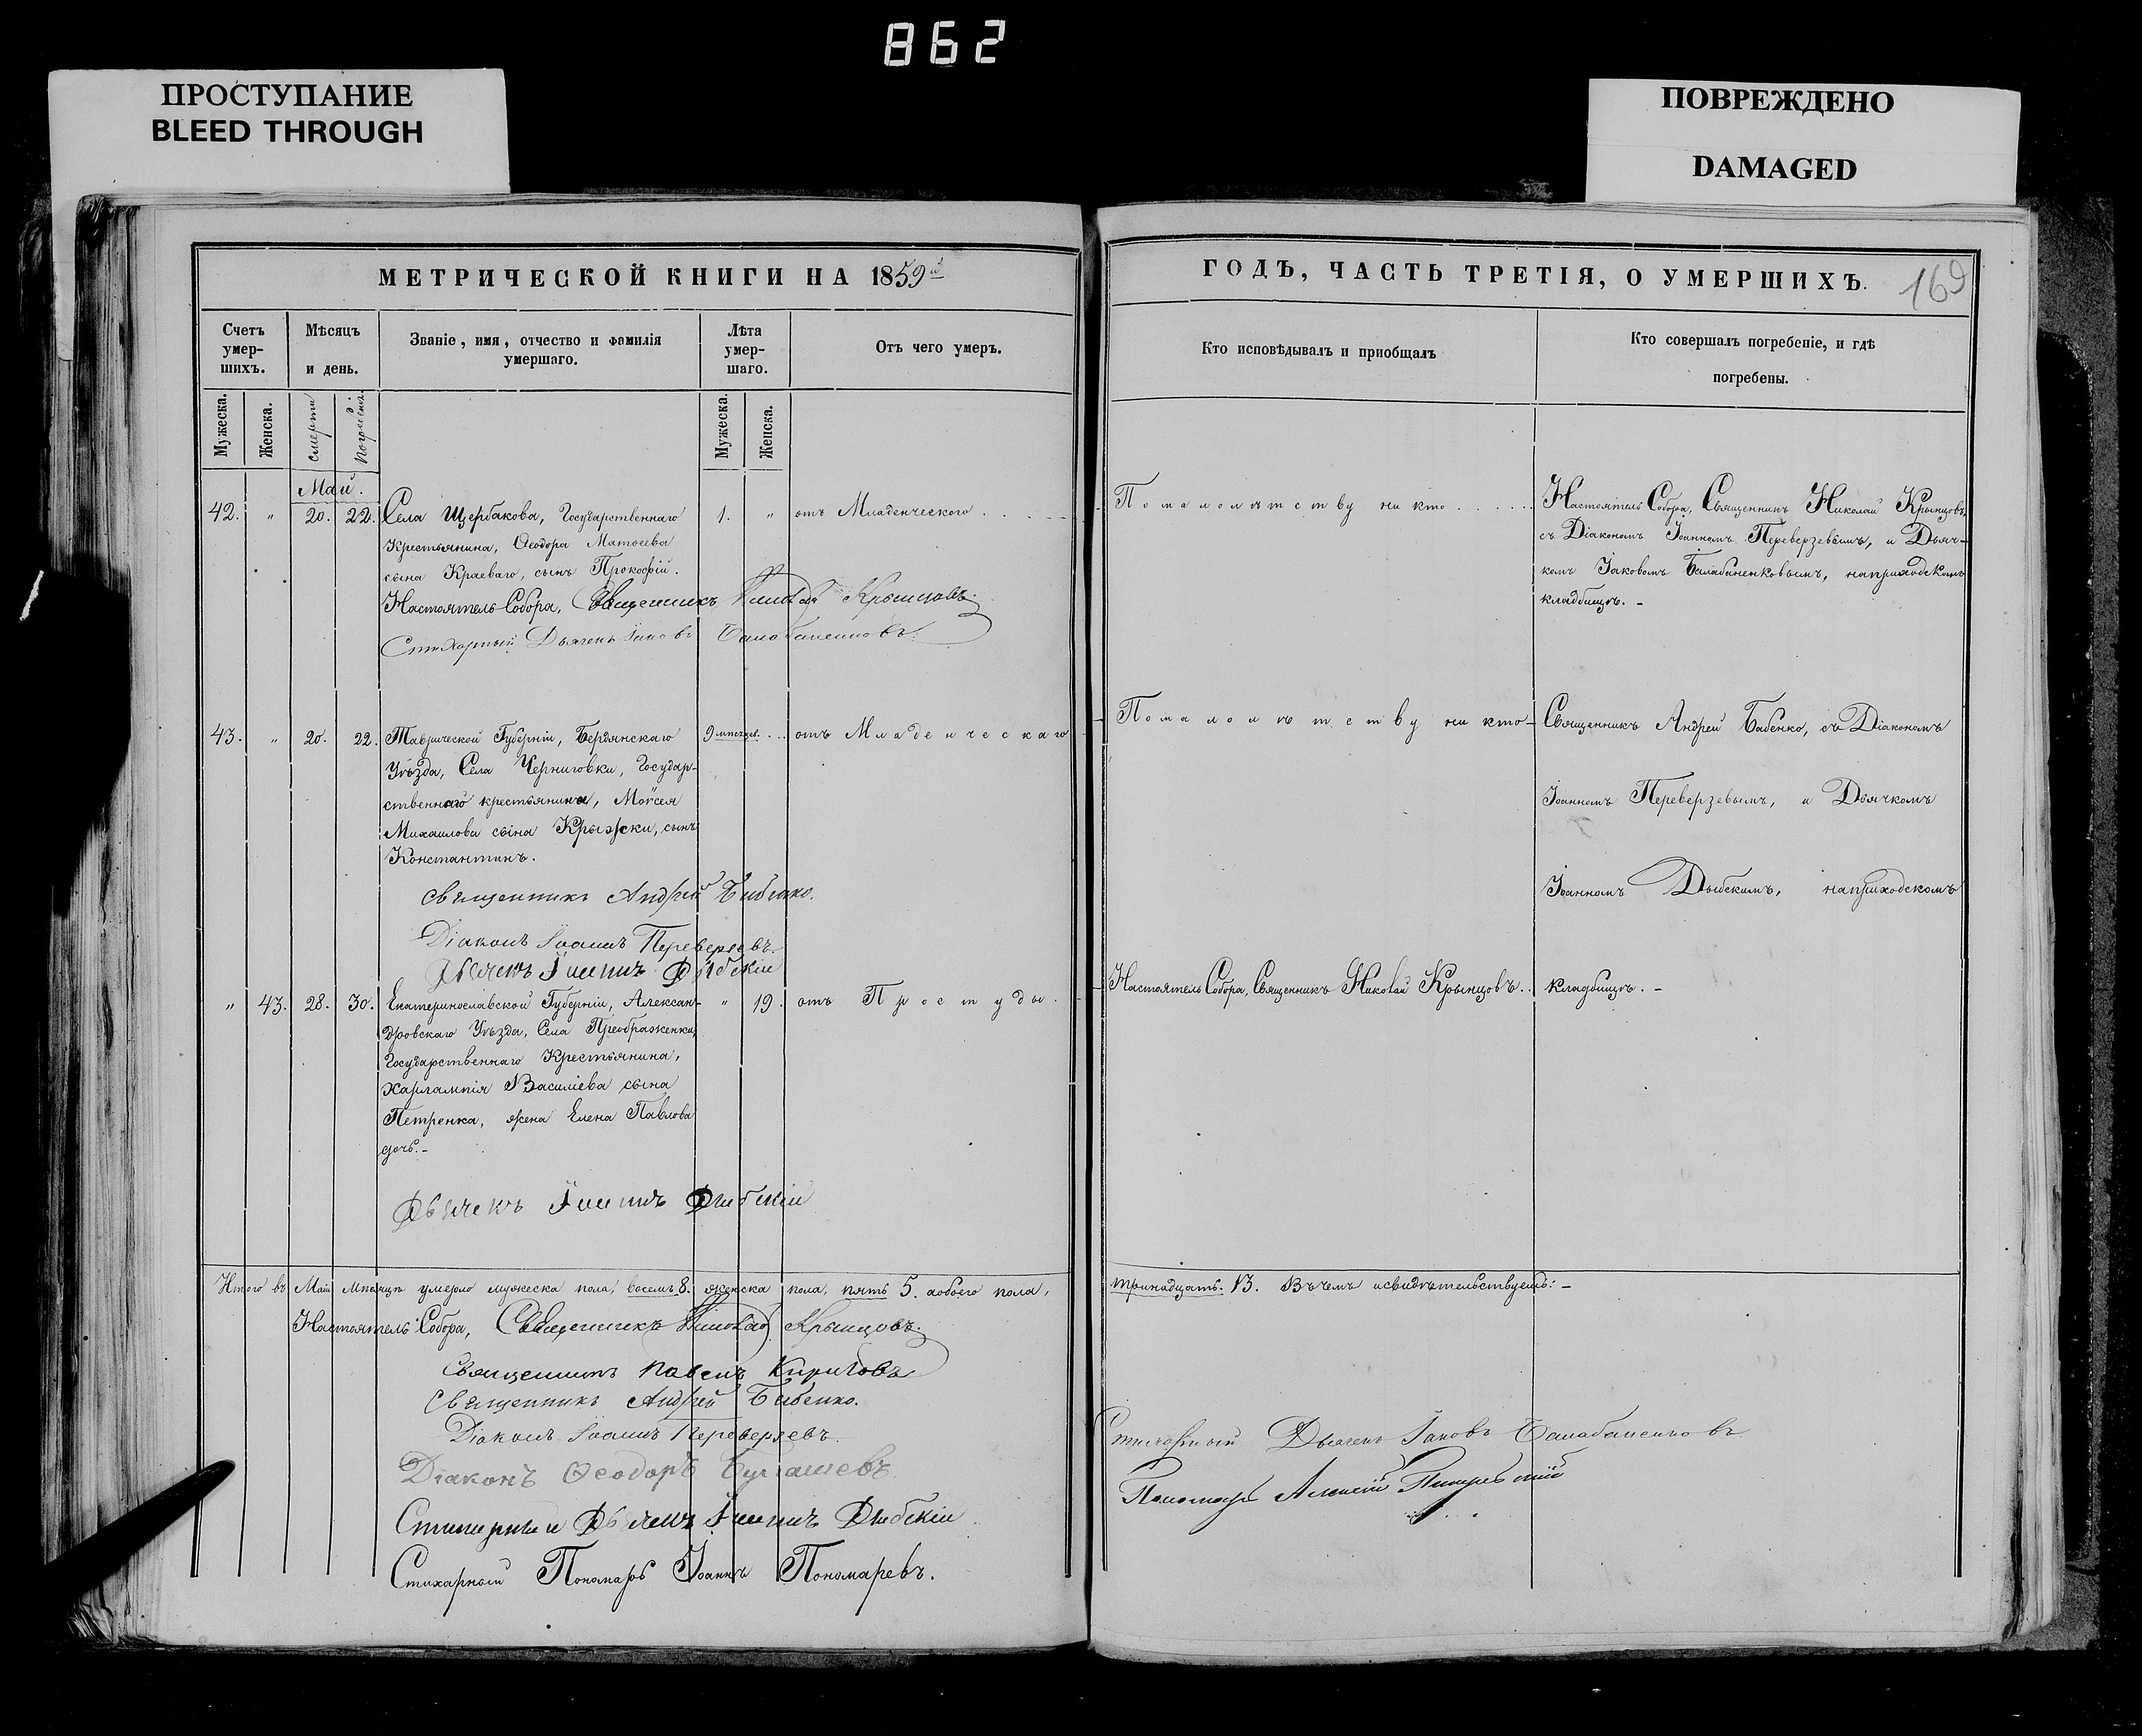 862
ПРОСТУПАНИЕ
BLEED THROUGH
ПОВРЕЖДЕНО
DAMAGED
МЕТРИЧЕСКОЙ КНИГИ НА 1859й
Счетъ умер-шихъ.
Мѣсяцъ и день.
Званіе, имя, отчество и фамилія умершаго.
Лѣта умер-шаго.
Отъ чего умеръ.
Мужеска.
Женска.
смерти
погребен:
Мужеска.
Женска.
Май.
42. „ 20. 22. Села Щербакова, Государственнаго 1. „ отъ Младенческого
Крестьянина, Ѳеодора Матѳеева
сына Краеваго, сынъ Прокофій.
Настоятель Собора, Священникъ Николай Крынцовъ.
Стихарный Дьячекъ Іаковъ Балабаненковъ.
43. „ 20. 22. Таврической Губерніи, Бердянскаго 9 мѣсяцев. отъ Младенческаго
Уѣзда, Села Черниговки, Государ-
ственнаго крестьянина, Моѵсея
Михаилова сына Крыжски, сынъ
Константинъ.
Священникъ Андрей Бабенко.
Діаконъ Іоаннъ Переверзевъ.
Дьячекъ Іоаннъ Дыбскій
„ 43. 28. 30. Екатеринославской Губерніи, Алексан- „ 19. отъ Простуды.
дровскаго Уѣзда, Села Преображенки,
Государственнаго Крестьянина,
Харлампія Василіева сына
Петренка, жена Елена Павлова
дочь.-
Дьячекъ Іоаннъ Дыбскій
Итого въ Маѣ мѣсяцѣ умерло мужеска пола, восемь 8. женска пола, пять 5. а обоего пола,
Настоятель Собора, Священникъ Николай Крынцовъ.
Священникъ Павелъ Кириловъ
Священникъ Андрей Бабенко.
Діаконъ Іоаннъ Переверзевъ.
Діаконъ Ѳеодоръ
Стихарный Дьячекъ Іоаннъ Дыбскій
Стихарный Пономарь Іоаннъ Пономаревъ.
ГОДЪ, ЧАСТЬ ТРЕТІЯ, О УМЕРШИХЪ.
169
Кто исповѣдывалъ и приобщалъ
Кто совершалъ погребеніе, и гдѣ
погребены.
По малолѣтству ни кто
Настоятель Собора, Священникъ Николай Крынцовъ,
съ Діакономъ Іоанномъ Переверзевымъ, и Дьяч-
комъ Іаковомъ Балабаненковымъ, на приходскомъ
кладбищѣ. -
По малолѣтству ни кто
Священникъ Андрей Бабенко, съ Діакономъ
Іоанномъ Переверзевымъ, и Дьячкомъ
Іоанномъ Дыбскимъ, на приходскомъ
Настоятель Собора, Священникъ Николай Крынцовъ.
кладбищѣ. -
тринадцать. 13. Въ чемъ и свидѣтельствуемъ: -
Стихарный Дьячекъ Іаковъ Балабаненковъ
Пономарь Алексій